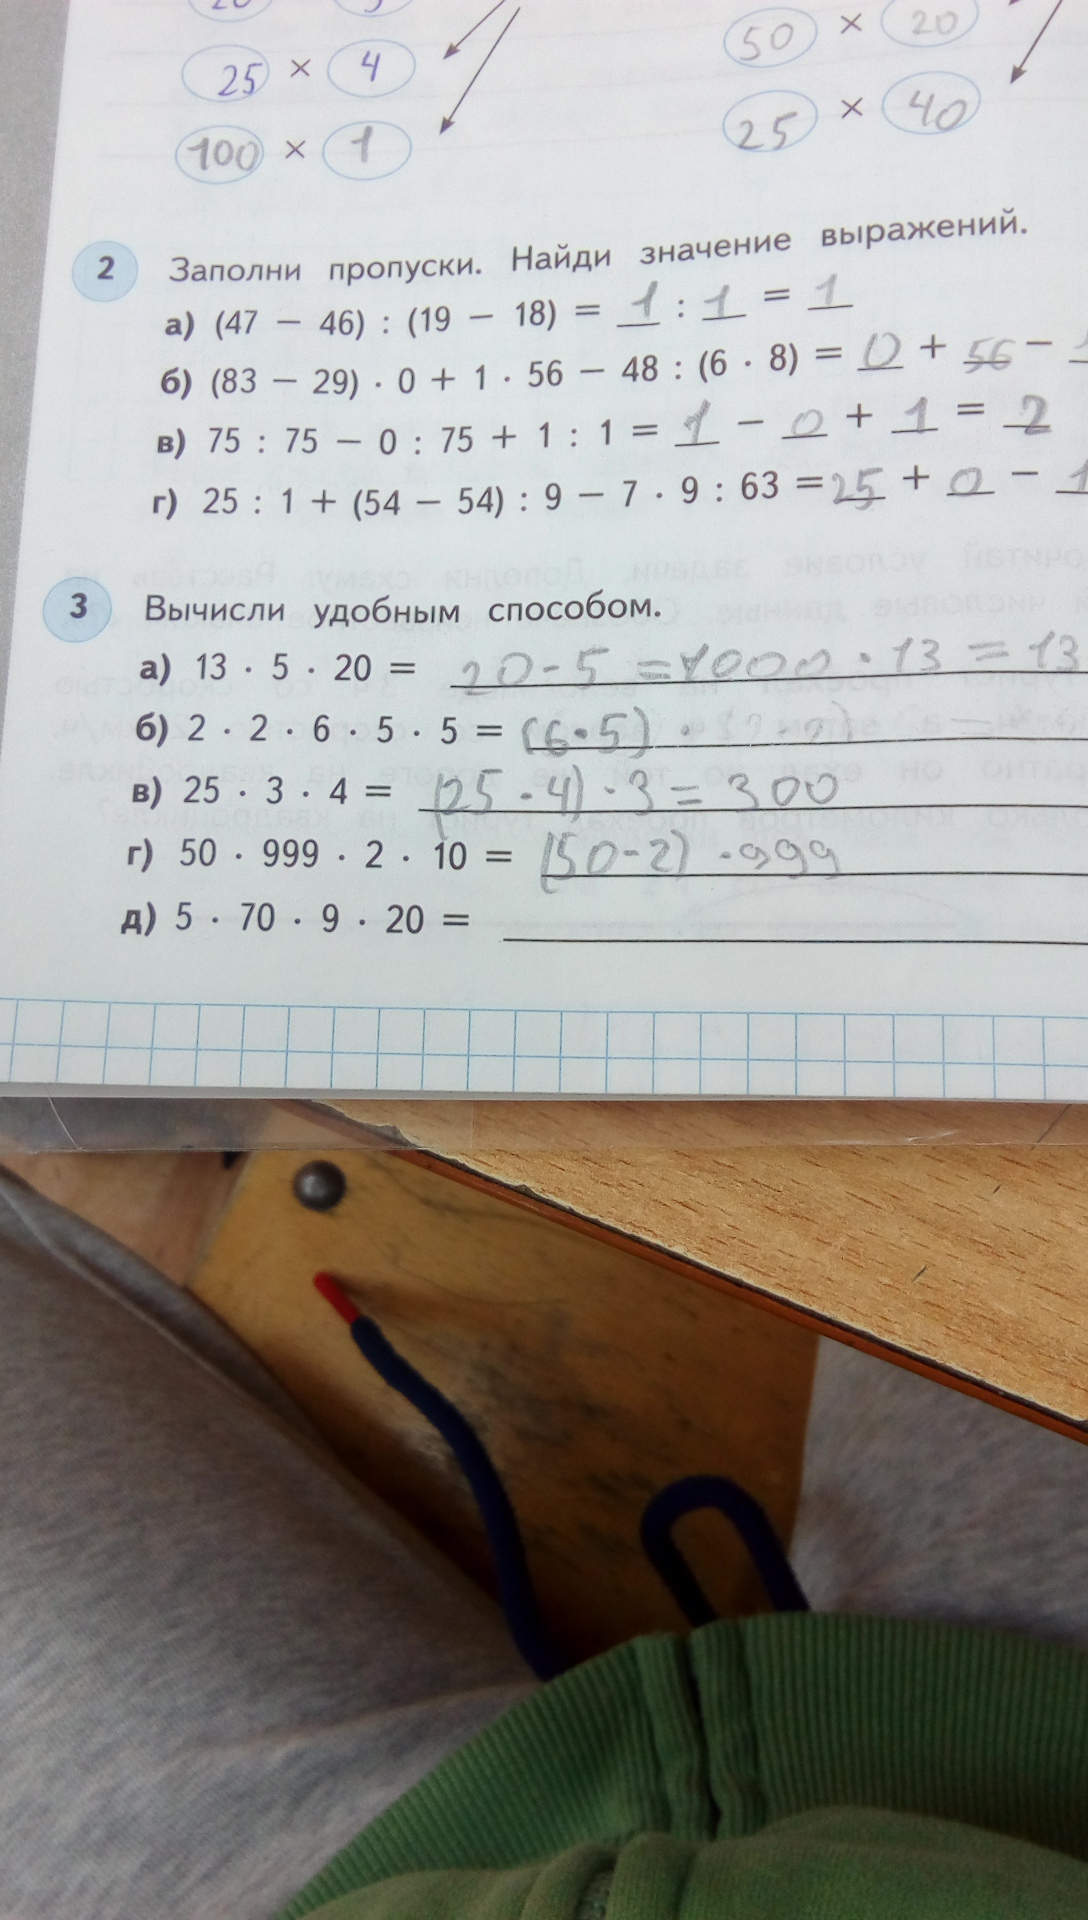 25 × 4
50 × 20
100 × 1
25 × 40
2 Заполни пропуски. Найди значение выражений.
а) (47 − 46) : (19 − 18) = 1 : 1 = 1
б) (83 − 29) · 0 + 1 · 56 − 48 : (6 · 8) = 0 + 56 −
в) 75 : 75 − 0 : 75 + 1 : 1 = 1 − 0 + 1 = 2
г) 25 : 1 + (54 − 54) : 9 − 7 · 9 : 63 = 25 + 0 − 1
3 Вычисли удобным способом.
а) 13 · 5 · 20 = 20 - 5 = 1000 · 13 = 13
б) 2 · 2 · 6 · 5 · 5 = (6 · 5) ·
в) 25 · 3 · 4 = (25 - 4) · 3 = 300
г) 50 · 999 · 2 · 10 = (50 - 2) · 999
д) 5 · 70 · 9 · 20 =